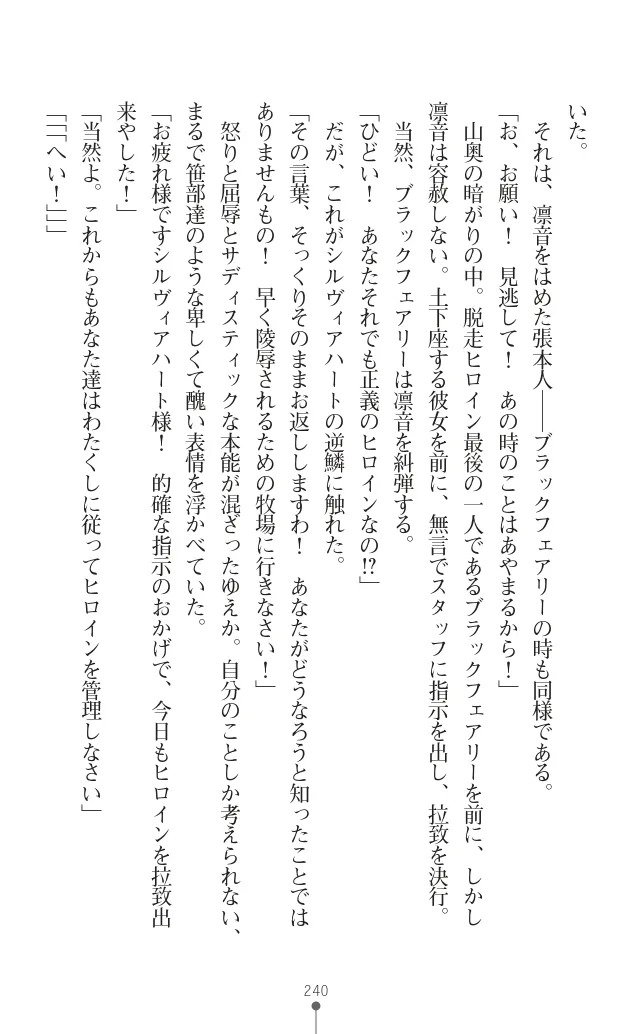 いた。
　それは、凛音をはめた張本人――ブラックフェアリーの時も同様である。
「お、お願い！　見逃して！　あの時のことはあやまるから！」
　山奥の暗がりの中。脱走ヒロイン最後の一人であるブラックフェアリーを前に、しかし
凛音は容赦しない。土下座する彼女を前に、無言でスタッフに指示を出し、拉致を決行。
　当然、ブラックフェアリーは凛音を糾弾する。
「ひどい！　あなたそれでも正義のヒロインなの!?」
　だが、これがシルヴィアハートの逆鱗に触れた。
「その言葉、そっくりそのままお返ししますわ！　あなたがどうなろうと知ったことでは
ありませんもの！　早く陵辱されるための牧場に行きなさい！」
　怒りと屈辱とサディスティックな本能が混ざったゆえか。自分のことしか考えられない、
まるで笹部達のような卑しくて醜い表情を浮かべていた。
「お疲れ様ですシルヴィアハート様！　的確な指示のおかげで、今日もヒロインを拉致出
来やした！」
「当然よ。これからもあなた達はわたくしに従ってヒロインを管理しなさい」
「「「へい！」」」
240